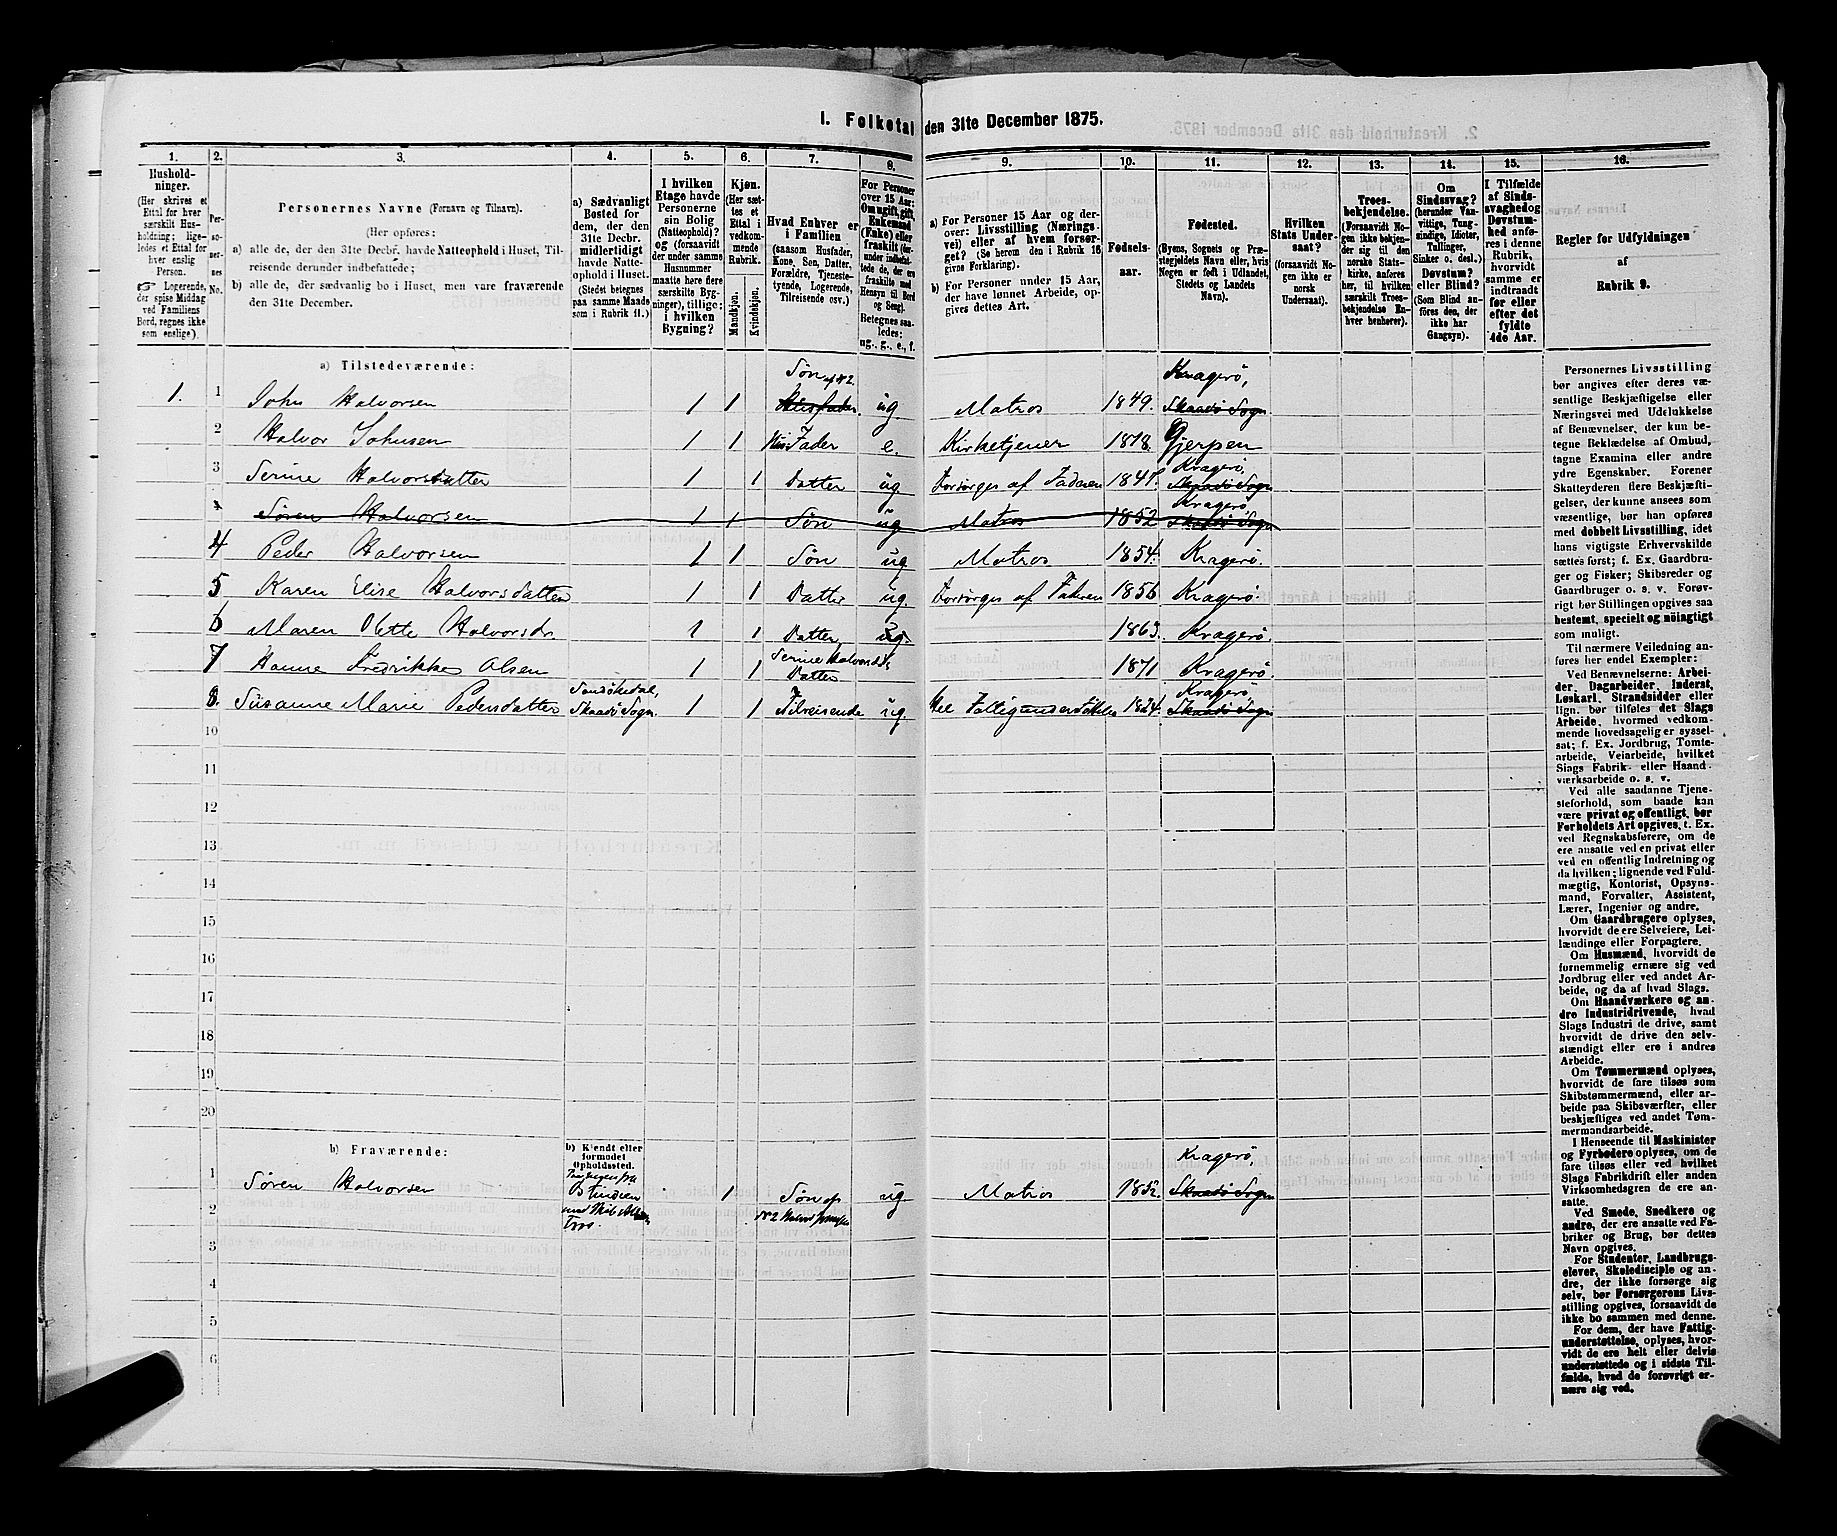 1. Folketal den 31te December 1875.
1. 2. 3. 4. 5. 6. 7. 8. 9. 10. 11. 12. 13. 14. 15. 16.
Husholdninger.
(Her skrives et
Ettal for hver
særskilt Husholdning; ligeledes et Ettal for
hver enslig
Person.
Logerende,
der spise Middag
ved Familiens
Bord, regnes ikke
som enslige).
Personernes No.
Personernes Navne (Fornavn og Tilnavn).
(Her opføres:
a) alle de, der den 31te Decbr. havde Natteophold i Huset, Tilreisende derunder indbefattede;
b) alle de, der sædvanlig bo i Huset, men vare fraværende
den 31te December.
a) Sædvanligt
Bosted for
dem, der den
31te Decbr.
midlertidigt
havde Natteophold i Huset.
(Stedet betegnes
paa samme Maade
som i Rubrik 11.)
I hvilken
Etage havde
Personerne
sin Bolig
(Natteophold)?
og (forsaavidt
der under samme
Husnummer
maatte høre flere
særskilte Bygninger), tillige:
i hvilken
Bygning?
Kjøn.
(Her sættes et
Ettal i
vedkommende
Rubrik.
Mandkjøn.
Kvindekjøn.
Hvad Enhver er
i Familien
(saasom Husfader,
Kone, Søn, Datter,
Forældre, Tjenestetyende, Logerende,
Tilreisende osv.)
For Personer
over 15 Aar:
Om ugift, gift,
Enkemand
(Enke) eller
fraskilt (derunder indbefattede de, der ere
fraskilte med
Hensyn til Bord
og Seng).
Betegnes saaledes:
ug., g., e., f.
a) For Personer 15 Aar og derover: Livsstilling (Næringsvei) eller af hvem forsørget? (Se herom den i Rubrik 16
givne Forklaring).
b) For Personer under 15 Aar,
der have lønnet Arbeide, opgives dettes Art.
Fødselsaar.
Fødested.
(Byens, Sognets og Præstegjeldets Navn, eller, hvis
Nogen er født i Udlandet,
Stedets og Landets
Navn).
Hvilken
Stats Undersaat?
(forsaavidt Nogen ikke er
norsk
Undersaat).
Troesbekjendelse.
(Forsaavidt Nogen ikke bekjender sig til den
norske Statskirke, anføres
her, til hvilken
særskilt Troesbekjendelse Enhver henhører).
Om
Sindssvag?
(herunder Vanvittige, Tungsindige, Idioter,
Tullinger,
Sinker o. desl.)
Døvstum?
eller Blind?
(Som Blind anføres den, der
ikke har
Gangsyn).
I Tilfælde
af Sindssvaghed og
Døvstumhed anføres i denne
Rubrik,
hvorvidt
samme er
indtraadt
før eller
efter det
fyldte
4de Aar.
Regler for Udfyldningen
af
Rubrik 9.
a) Tilstedeværende:
1. 1 John Halvorsen 1 1 Husfader Søn af N 2. ug Matros 1849. Skaadø Sogn Kragerö,
2 Halvor Johnsen 1 1 Husfader e. Kirketjener 1818. Gjerpen
3 Serine Halvorsdatter 1 1 Datter ug. Forsørges af Faderen 1847. Skaadø Sogn Kragerö.
4 Søren Halvorsen 1 1 Søn ug Matros 1852 Skaadø Sogn Kragerö
4 Peder Halvorsen 1 1 Søn ug Matros 1854. Kragerö.
5 Karen Elise Halvorsdatter 1 1 Datter ug. Forsørges af Faderen 1856 Kragerö.
6 Maren Olette Halvorsdr. 1 1 Datter ug. 1863. Kragerö.
7 Hanne Fredrikke Olsen 1 1 Serine Halvorsdtrs Datter 1871 Kragerö.
8. Susanne Marie Pedersdatter Sandökedal, Skaadø Sogn. 1 1 Tilreisende ug. 1824. Skaadø Sogn Kragerö,
10
11
12
13
14
15
16
17
18
19
20
b) Fraværende:
b) Kjendt eller
formodet
Opholdssted.
1 Søren Halvorsen 1 Søn af N 2 Halvor Johnsen ug Matros 1852. Skaadø Sogn Kragerö,
Ostindien
2
3
4
5
6
Personernes Livsstilling
bør angives efter deres væsentlige Beskjæftigelse eller
Næringsvei med Udelukkelse
af Benævnelser, der kun betegne Beklædelse af Ombud,
tagne Examina eller andre
ydre Egenskaber. Forener
Skatteyderen flere Beskjæftigelser, der kunne ansees som
væsentlige, bør han opføres
med dobbelt Livsstilling, idet
hans vigtigste Erhvervskilde
sættes først; f. Ex. Gaardbruger og Fisker; Skibsreder og
Gaardbruger o. s. v. Forøvrigt bør Stillingen opgives saa
bestemt, specielt og nøiagtigt
som muligt.
Til nærmere Veiledning anføres her endel Exempler:
Ved Benævnelserne: Arbeider, Dagarbeider, Inderst,
Løskarl, Strandsidder eller
lign. bør tilføies det Slags
Arbeide, hvormed vedkommende hovedsagelig er sysselsat; f. Ex. Jordbrug, Tomtearbeide, Veiarbeide, hvilket
Slags Fabrik- eller Haandværksarbeide o. s. v.
Ved alle saadanne Tjenesteforhold, som baade kan
være privat og offentligt, bør
Forholdets Art opgives, t. Ex.
ved Regnskabsførere, om de
ere ansatte ved en privat eller
ved en offentlig Indretning og
da hvilken; lignende ved Fuldmægtig, Kontorist, Opsynsmand, Forvalter, Assistent,
Lærer, Ingeniør og andre.
Om Gaardbrugere oplyses,
hvorvidt de ere Selveiere, Leilændinge eller Forpagtere.
Om Husmænd, hvorvidt de
fornemmelig ernære sig ved
Jordbrug eller ved andet Arbeide, og da af hvad Slags.
Om Haandværkere og andre Industridrivende, hvad
Slags Industri de drive, samt
hvorvidt de drive den selvstændigt eller ere i andres
Arbeide.
Om Tømmermænd oplyses,
hvorvidt de fare tilsøs som
Skibstømmermænd, eller arbeide paa Skibsværfter, eller
beskjæftiges ved andet Tømmermandsarbeide.
I Henseende til Maskinister
og Fyrbødere oplyses, om de
fare tilsøs eller ved hvilket
Slags Fabrikdrift eller anden
Virksomhedsgren de ere ansatte.
Ved Smede, Snedkere og
andre, der ere ansatte ved Fabriker og Brug, bør dettes
Navn opgives.
For Studenter, Landbrugselever, Skoledisciple og andre, der ikke forsørge sig
selv, bør Forsørgerens Livsstilling opgives, forsaavidt de
ikke bo sammen med denne.
For dem, der have Fattigunderstøttelse, oplyses, hvorvidt de ere helt eller delvis
understøttede og i sidste Tilfælde, hvad de forøvrigt ernære sig ved.